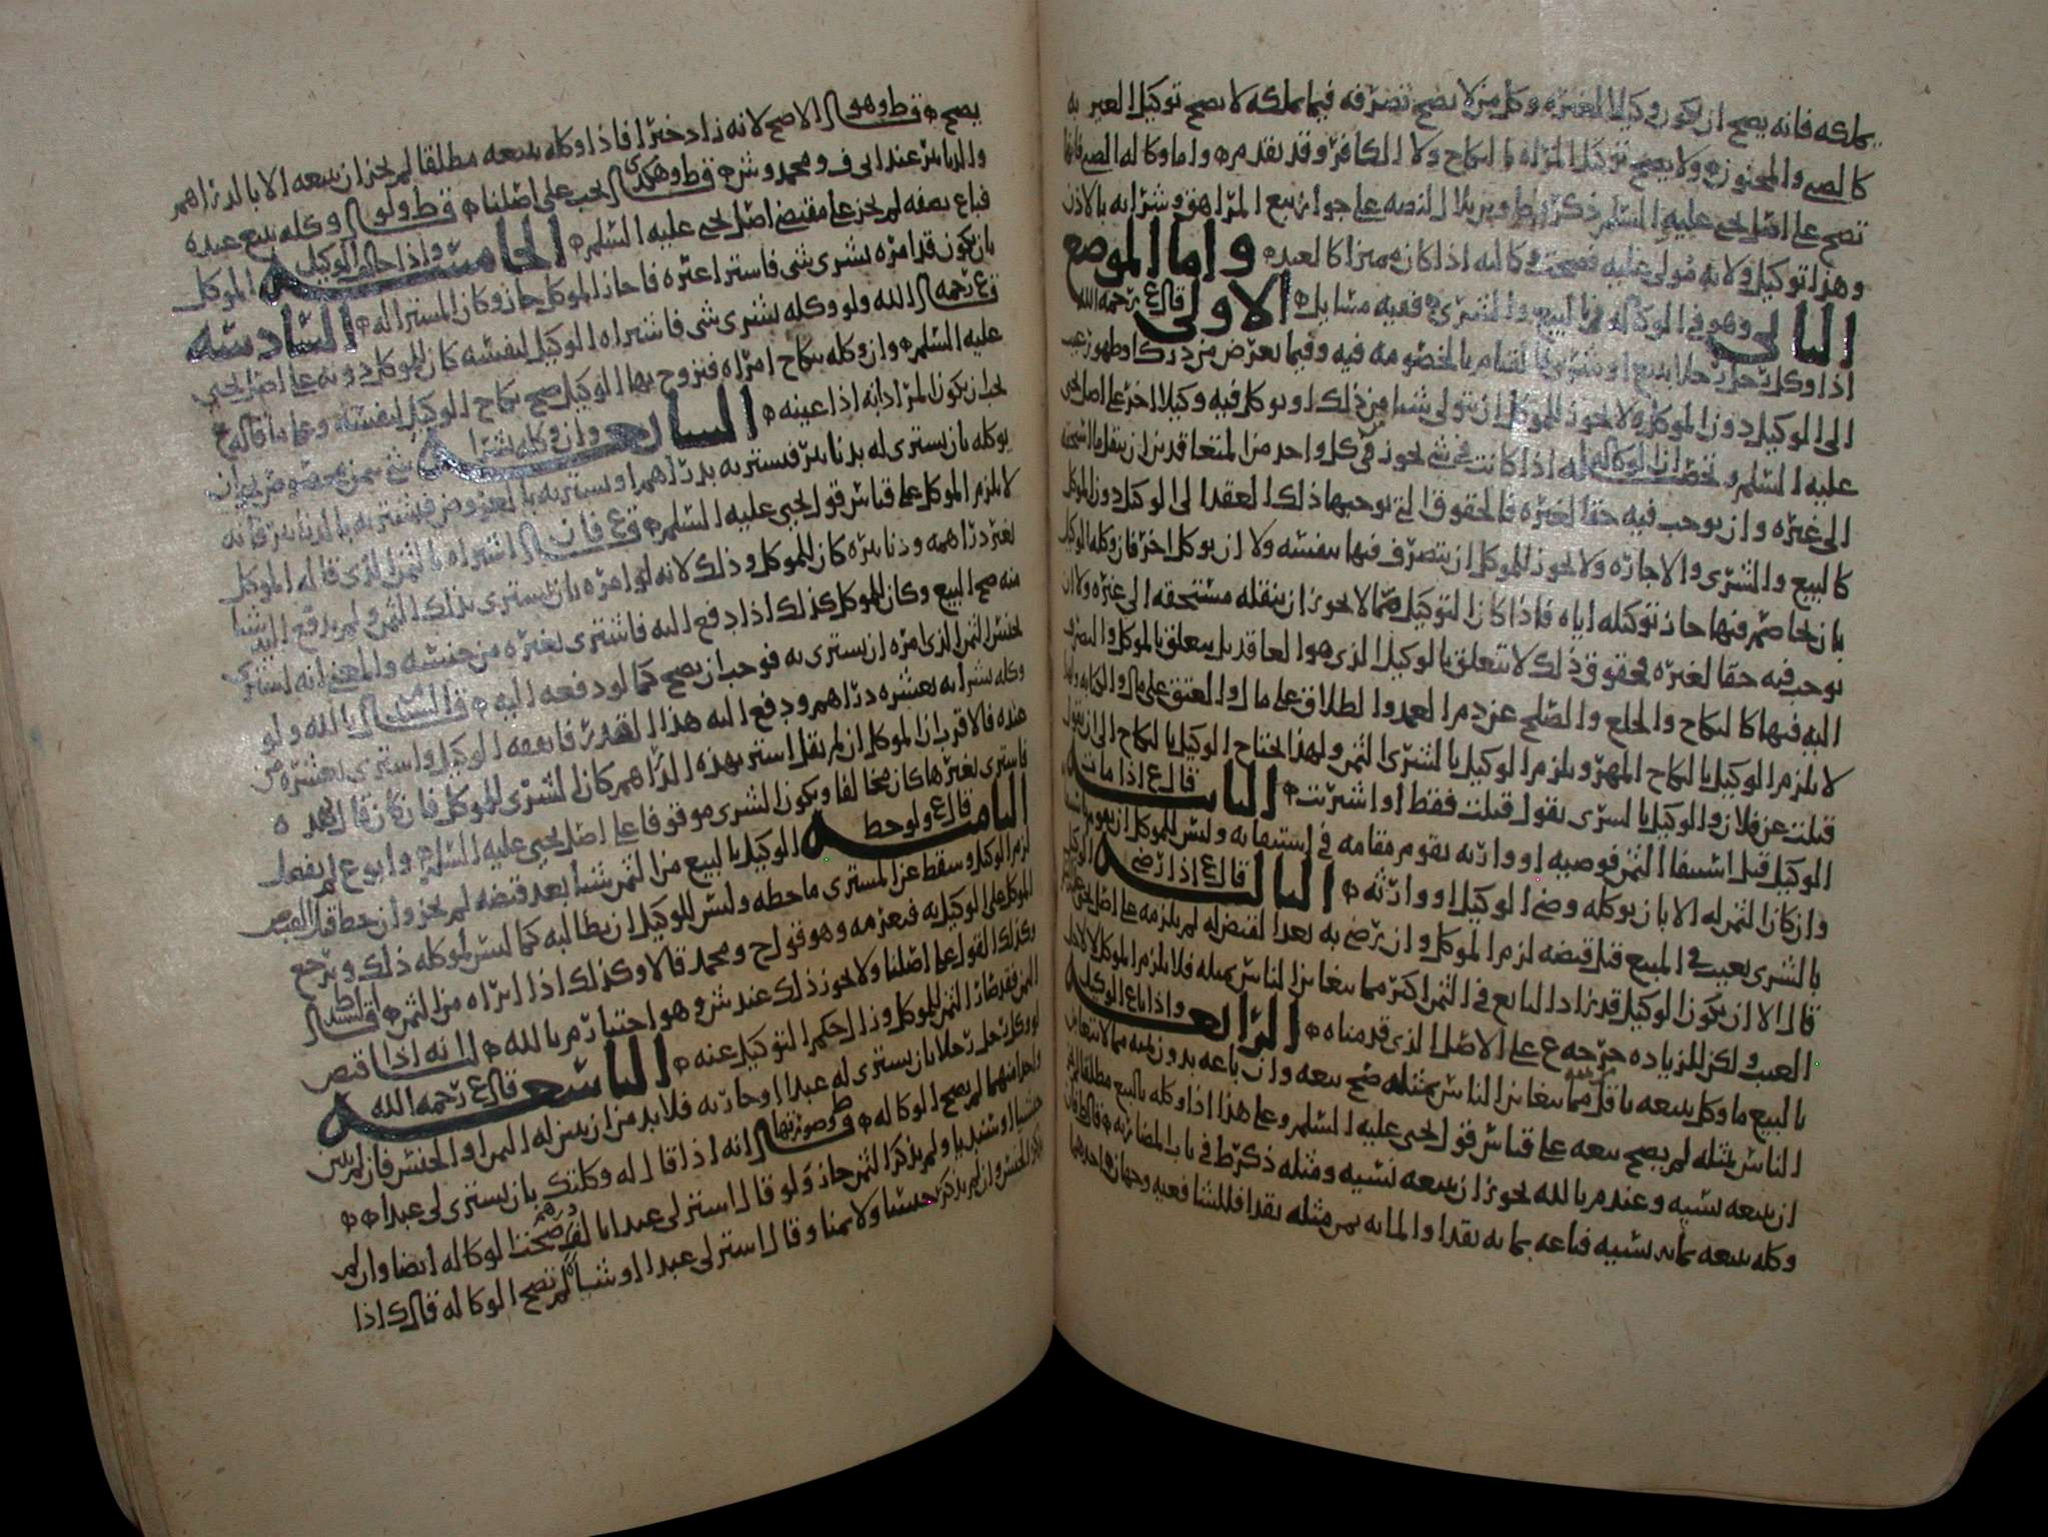 يملكه فانه يصح ان يكون وكيلا لغيره وكل من لا يصح تصرفه فيما يملكه لا يصح توكيل الغير به
كالصبي والمجنون ولا يصح توكيل المراه بالنكاح ولا الكافر وقد تقدم واما وكاله الصبي فانها
تصح على اصل يحيى عليه السلم ذكره ط ويريد النصه على جواز بيع المراهق وشرائه بالاذن
وهذا توكيل ولانه مولى عليه فصحت وكالته اذا كان مميزا كالعبد واما الموضع
الثاني وهو في الوكاله في البيع والشرى ففيه مسايل الاولى قال ع رحمه الله
اذا وكل رجل رجلا ببيع او شرى فالقيام بالخصومه فيه وفيما يعرض من درك او ظهور عيب
الى الوكيل دون الموكل ولا يجوز للموكل ان يتولى شيا من ذلك او يوكل فيه وكيلا اخر على اصل يحيى
عليه السلم وتحصيله ان الوكاله اذا كانت في شي يجوز في كل واحد من المتعاقدين ان ينقل ما استحقه
الى غيره وان يوجب فيه حقا لغيره فالحقوق التي يوجبها ذلك العقد الى الوكيل دون الموكل
كالبيع والشرى والاجاره ولا يجوز للموكل ان يتصرف فيها بنفسه ولا ان يوكل اخر فان وكله الوكيل
بان يخاصم فيها جاز توكيله اياه فاذا كان التوكيل فيما لا يجوز ان ينقله مستحقه الى غيره ولا ان
يوجب فيه حقا لغيره فحقوق ذلك لا تتعلق بالوكيل الذي هو العاقد بل يتعلق بالموكل والتصرف
اليه فيها كالنكاح والخلع والصلح عن دم العمد والطلاق على مال والعتق على مال والكتابه ولهذا
لا يلزم الوكيل بالنكاح المهر ويلزم الوكيل بالشرى الثمن ولهذا يحتاج الوكيل بالنكاح الى ان يقول
قبلت عن فلان والوكيل بالشرى يقول قبلت فقط او اشتريت الثانيه قال ع اذا مات
الوكيل قبل استيفا الثمن فوصيه او وارثه يقوم مقامه في استيفائه وليس للموكل ان يقوم باستيفا
وان كان الثمن له الا بان يوكله وصي الوكيل او وارثه الثالثه قال ع اذا رضي الوكيل
بالشرى بعيب في المبيع قبل قبضه لزم الموكل وان رضي به بعد القبض له لم يلزمه على اصل يحيى
قال الا ان يكون الوكيل قد زاد البايع في الثمن اكثر مما يتغابن الناس بمثله فلا يلزم الموكل لا لاجل
العيب ولكن للزياده خرجه ع على الاصل الذي قدمناه الرابعه واذا باع الوكيل
بالبيع ما وكل ببيعه باقل من قيمته مما يتغابن الناس بمثله صح بيعه وان باعه بدون ثمنه مما لا يتغابن
الناس بمثله لم يصح بيعه على قياس قول يحيى عليه السلم وعلى هذا اذا وكله بالبيع مطلقا لم يجز
ان يبيعه نسيه وعند م بالله يجوز ان يبيعه نسيه ومثله ذكر ط في باب المضاربه قال ط فان
وكله ببيعه بمائه نسيه فباعه بمائه نقدا والمائه ثمن مثله نقدا فللشافعيه وجهان احدهما
يصح قال ط وهو الاصح لانه زاد خيرا فاذا وكله ببيعه مطلقا لم يجز ان يبيعه الا بالدراهم
والدنانير عند ابي ف ومحمد وش قال ط وهكذى يجب على اصلنا قال ط ولو وكله ببيع عبده
فباع نصفه لم يجز على مقتضى اصل يحيى عليه السلم الخامسه واذا خالف الوكيل الموكل
بان يكون قد امره بشرى شي فاشترا غيره فاجاز الموكل جاز وكان المشترا له السادسه
قال ع رحمه الله ولو وكله بشرى شي فاشتراه الوكيل لنفسه كان للموكل دونه على اصل يحيى
عليه السلم وان وكله بنكاح امراه فتزوج بها الوكيل صح نكاح الوكيل لنفسه وعلى ما قاله ع
يجب ان يكون المراد انه اذا عينه السابعه وان وكله بشرا شي بثمن مخصوص نحو ان
يوكله بان يشتري له بدنانير فيشتريه بدراهم او يشتريه بالعروض فيشتريه بالدنانير فانه
لا يلزم الموكل على قياس قول يحيى عليه السلم قال ع فان اشتراه بالثمن الذي قاله الموكل
لغير دراهمه ودنانيره كان للموكل وذلك لانه لو امره بان يشتري بذلك الثمن ولم يدفع اليه شيا
منه صح البيع وكان للموكل كذلك اذا دفع اليه فاشترى بغيره من جنسه والمعنى انه اشترى
بجنس الثمن الذي امره ان يشتري به فوجب ان يصح كما لو دفعه اليه قال السيد م بالله ولو
وكله بشرائه بعشره دراهم ودفع اليه هذا القدر فانفقه الوكيل واشترى بعشره من
عنده فالاقرب ان الموكل ان لم يقل اشتر بهذه الدراهم كان الشرى للموكل فان كان قال بهذه
فاشترى بغيرها كان مخالفا ويكون الشرى موقوفا على اصل يحيى عليه السلم وابو ع لم يفصل
الثامنه قال ع ولو حط الوكيل بالبيع من الثمن شيا بعد قبضه لم يجز وان حط قبل القبض
لزم الوكيل وسقط عن المشتري ما حطه وليس للوكيل ان يطالبه كما ليس لموكله ذلك ويرجع
الموكل على الوكيل به فيغرمه وهو قول ح ومحمد قالا وكذلك اذا ابراه من الثمن قال السيد ط
وكذلك القول على اصلنا ولا يجوز ذلك عند ش وهو اختيار م بالله لنا انه اذا قبض
الثمن فقد صار الثمن للموكل وزال حكم التوكيل عنه التاسعه قال ع رحمه الله
لو وكل رجل رجلا بان يشتري له عبدا او جاريه فلا بد من ان يبين له الثمن او الجنس فان لم يبين
واحدا منهما لم يصح الوكاله قال ط وصورتها انه اذا قال له وكلتك بان يشتري لي عبدا
حبشيا او سنديا ولم يذكر الثمن جاز ولو قال اشتر لي عبدا بالف درهم صحت الوكاله ايضا وان لم
يذكر الجنس وان لم يذكر جنسا ولا ثمنا وقال اشتر لي عبدا او شيا لم تصح الوكاله قال ك اذا